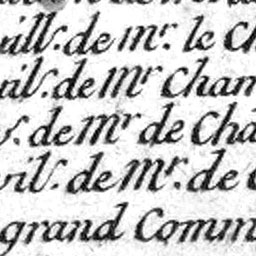 aill.ͬ de mͬ. le Ch
ail.ͬ de Mͬ Cham
ͬ. de Mͬ de Cha
vil.ͬ de Mͬ. de
grand Comm